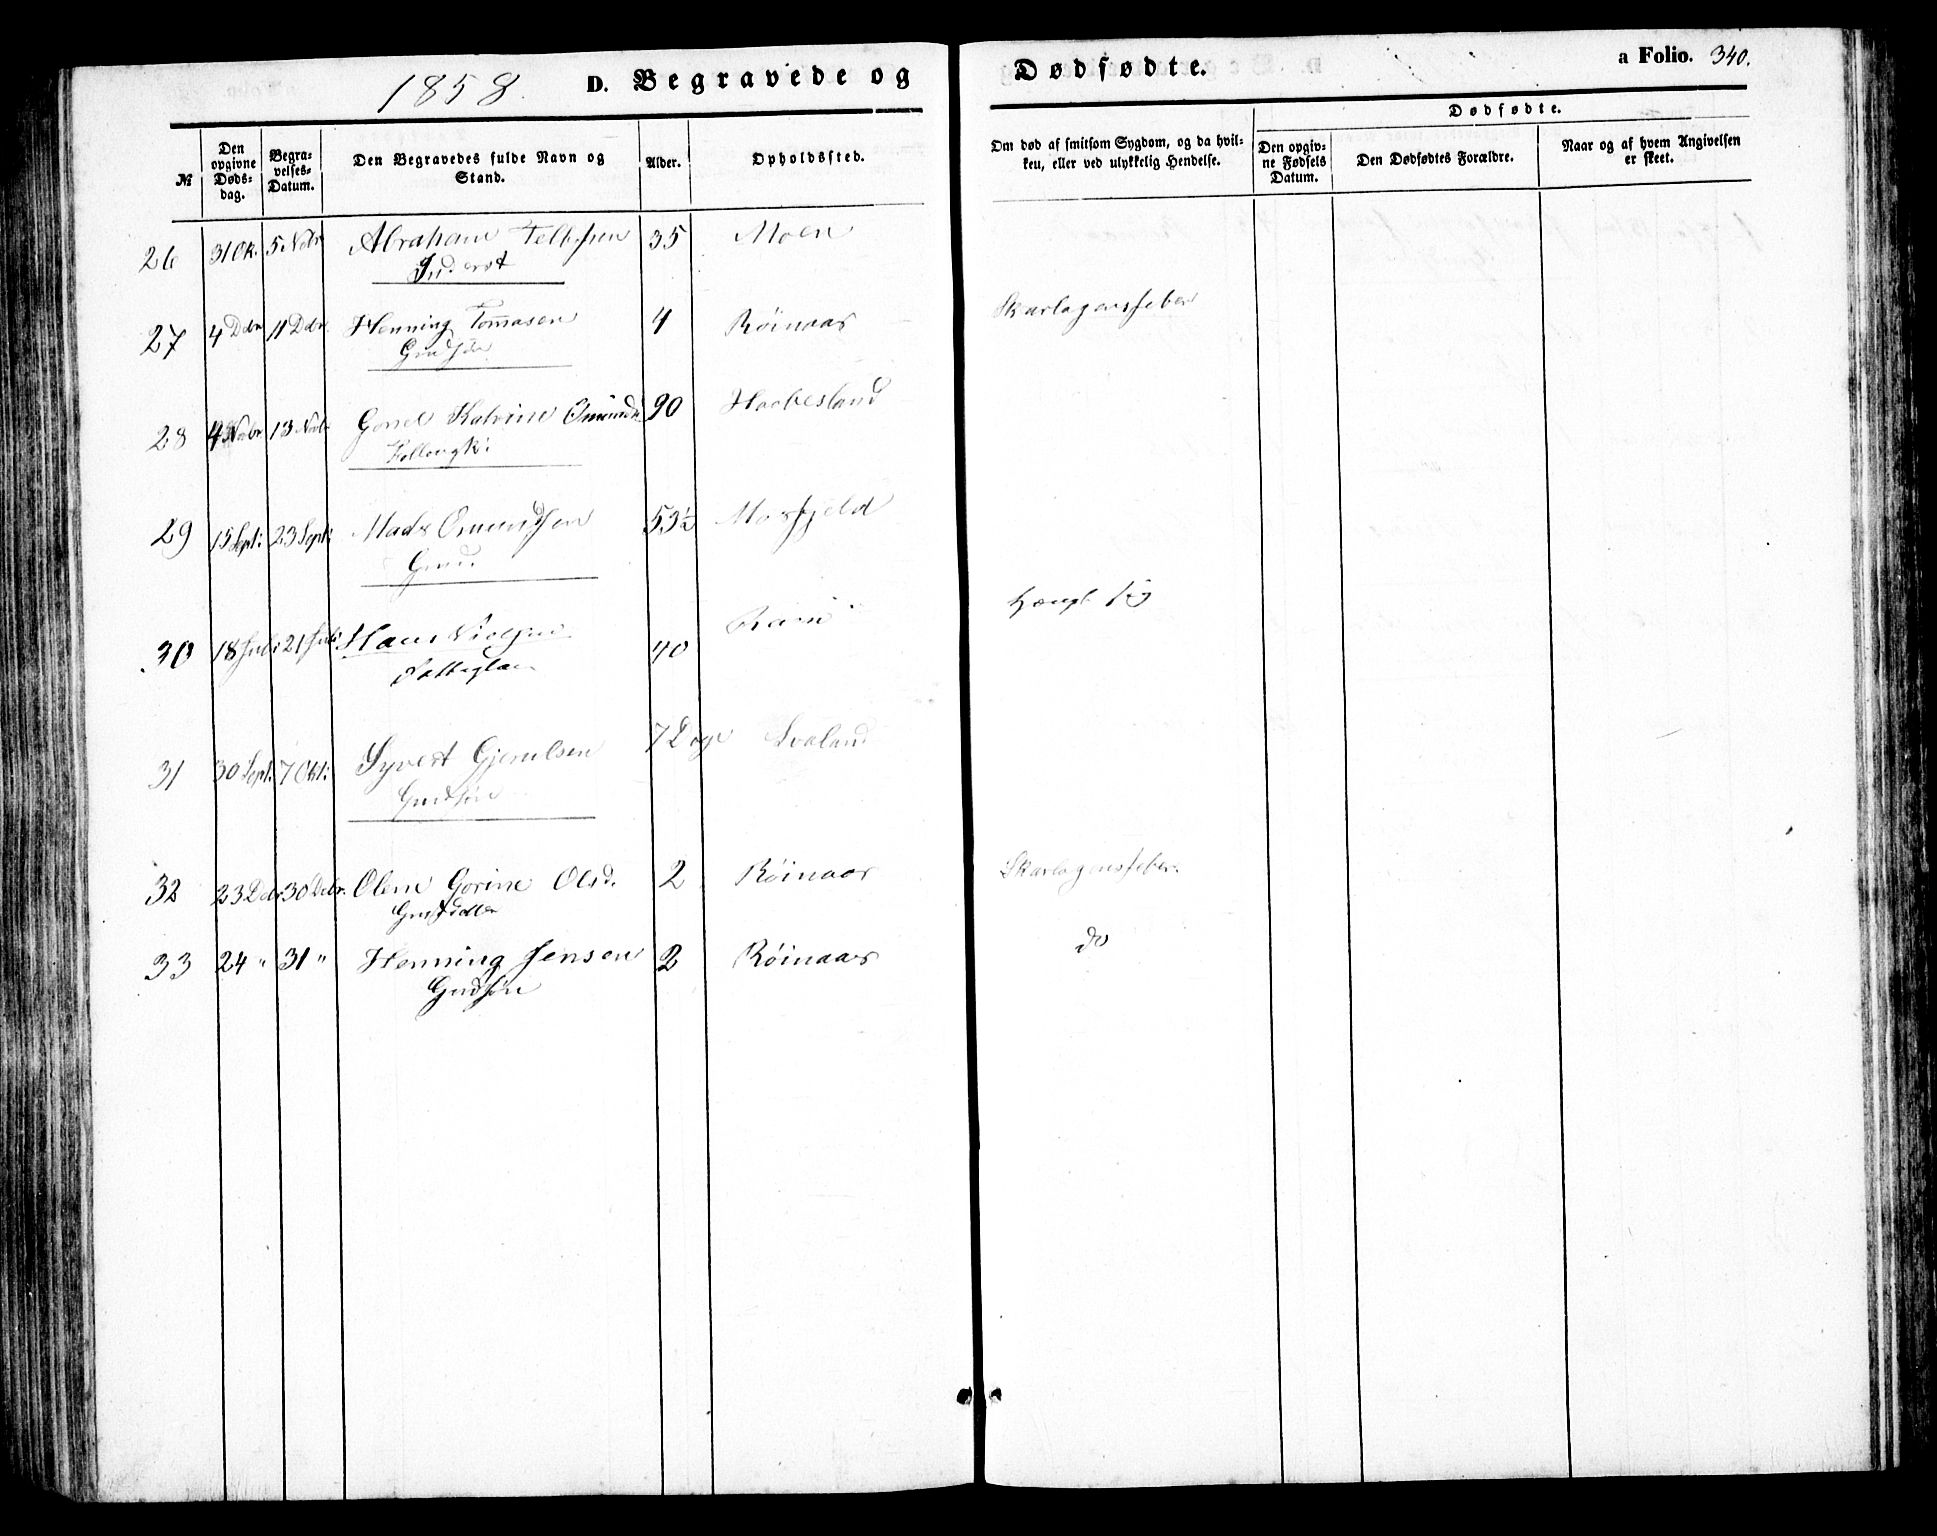 1858. D. Begravede og Dødfødte. a Folio. 340.
Dødfødte.
№ Den opgivne Dødsdag. Begravelses-Datum. Den Begravedes fulde Navn og Stand. Alder. Opholdssted. Om død af smitsom Sygdom, og da hvilken, eller ved ulykkelig Hendelse. Den opgivne Fødsels Datum. Den Dødfødtes Forældre. Naar og af hvem Angivelsen er skeet.
26 31 Ok. 5 Nobr Abraham 35 Moen
Inderst
27 4 Dbr 11 Dbr. Henning Tomasen 4 Röinaas Skarlagensfeber
Gmdsön
28 4 Nobr 13 Nobr Gonel Katrine 90 Haabesland
29 15 Sept: 23 Sept: Mads Omundsen 53½ Mosfjeld
Gmd
30 18 Juli 21 Juli Hans Nielsen 40 Hængt sig
31 30 Sept. 7 Okt: Syvert Gjerulsen 7 Dage Svaland
Gmdsön
32 23 Debr 30 Debr. Olene Gorine Olsd. 2 Röinaas Skarlagensfeber.
33 24 " 31 " Henning Jensen 2 Röinaas do
Gmdsön